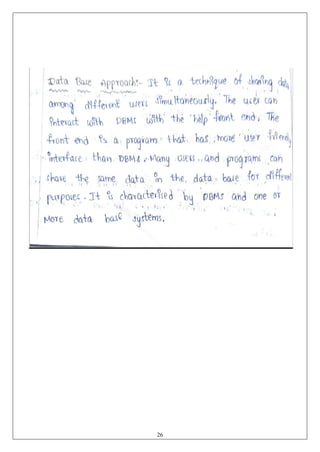 Data Base Approach:- It is a technique of sharing data
among different users simultaneously. The user can
interact with DBMS with the help front end, The
front end is a program that has more user friendly
interface than DBMS, Many users and programs can
share the same data in the data base for different
purposes. It is characterised by DBMS and one or
More data base systems.
26